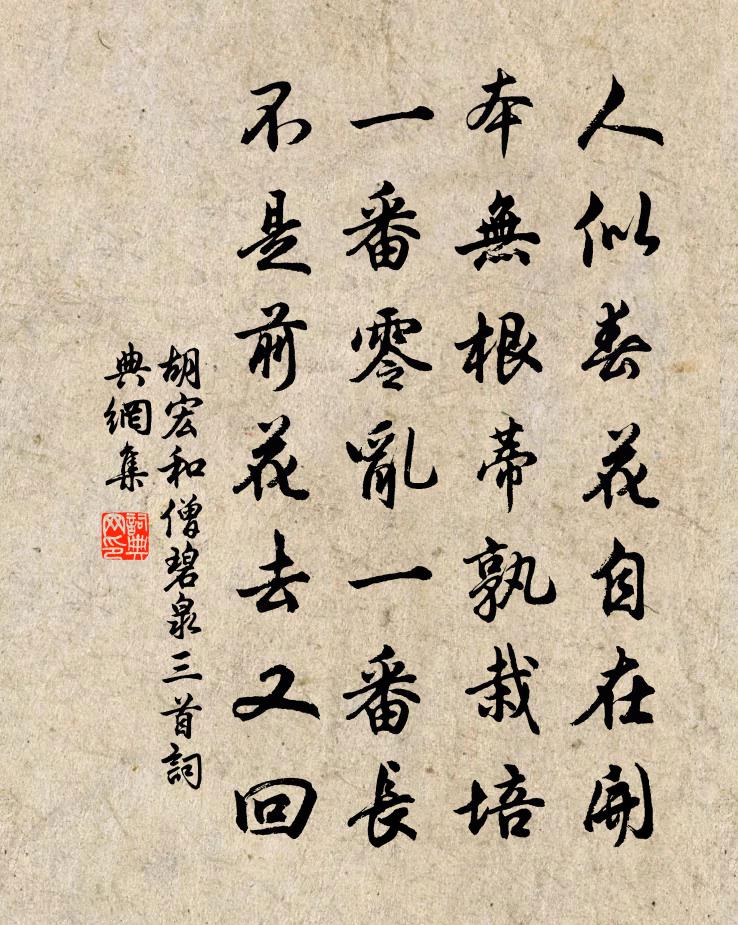 人似春花自在開
本無根蒂孰栽培
一番零亂一番長
不是前花去又回
胡宏和僧碧泉三首詞
典網集
詞典
网印